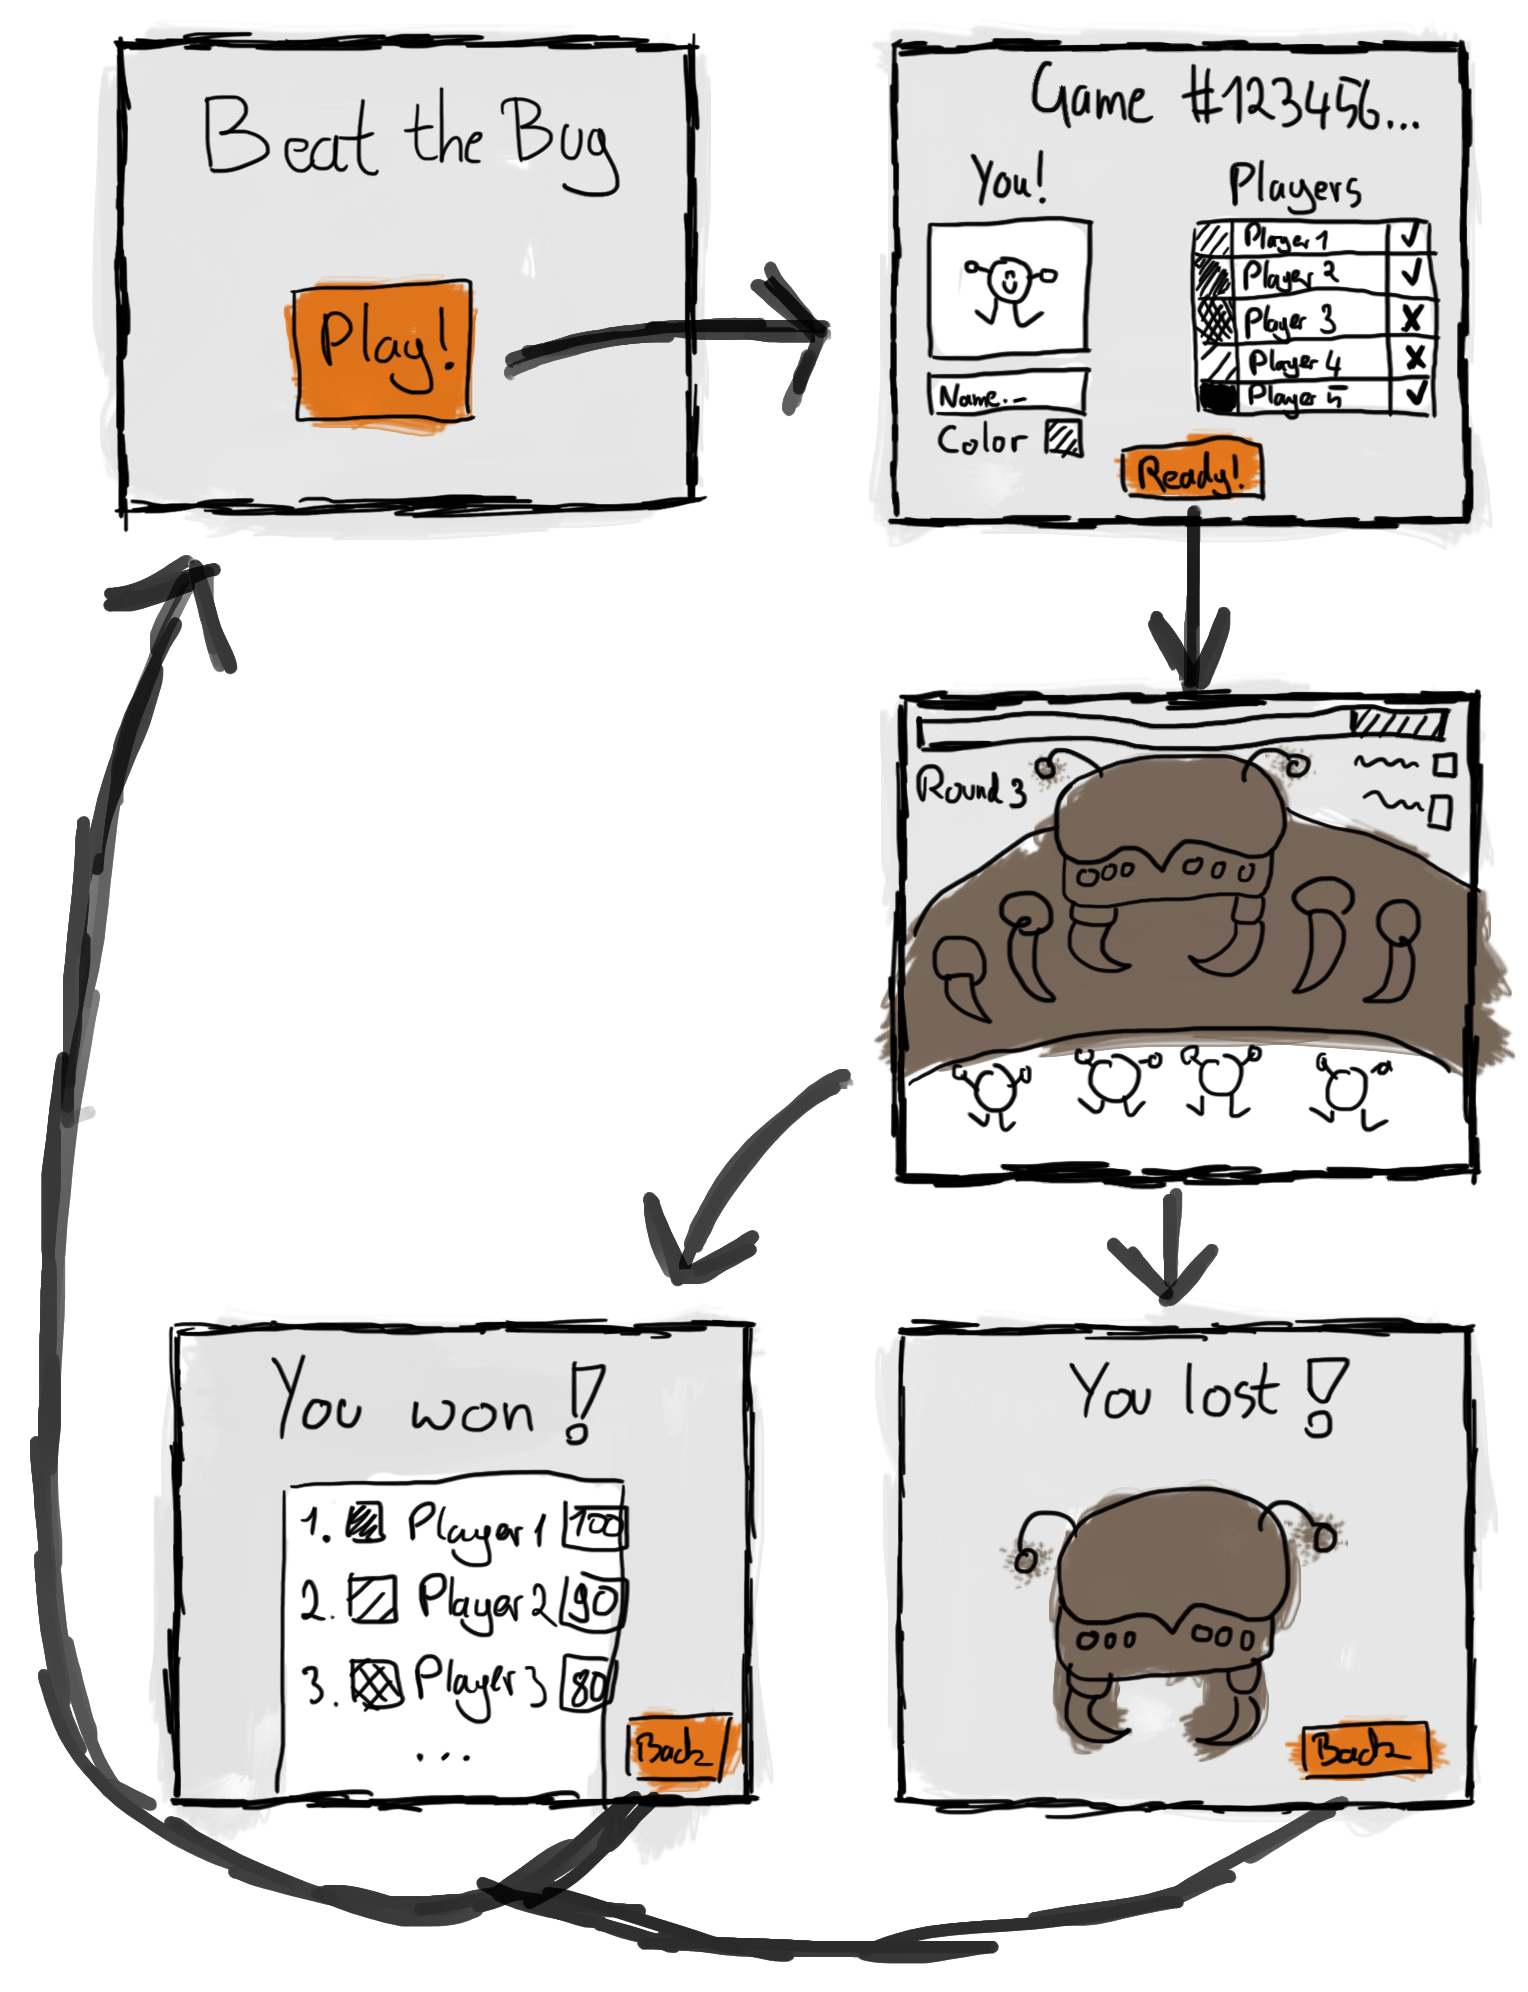 Beat the Bug
Play!
Game #123456...
You!
Name...
Color
Players
Player 1
Player 2
Player 3
Player 4
Player 5
Ready!
Round 3
You won!
1. Player 1 100
2. Player 2 90
3. Player 3 80
...
Back
You lost!
Back